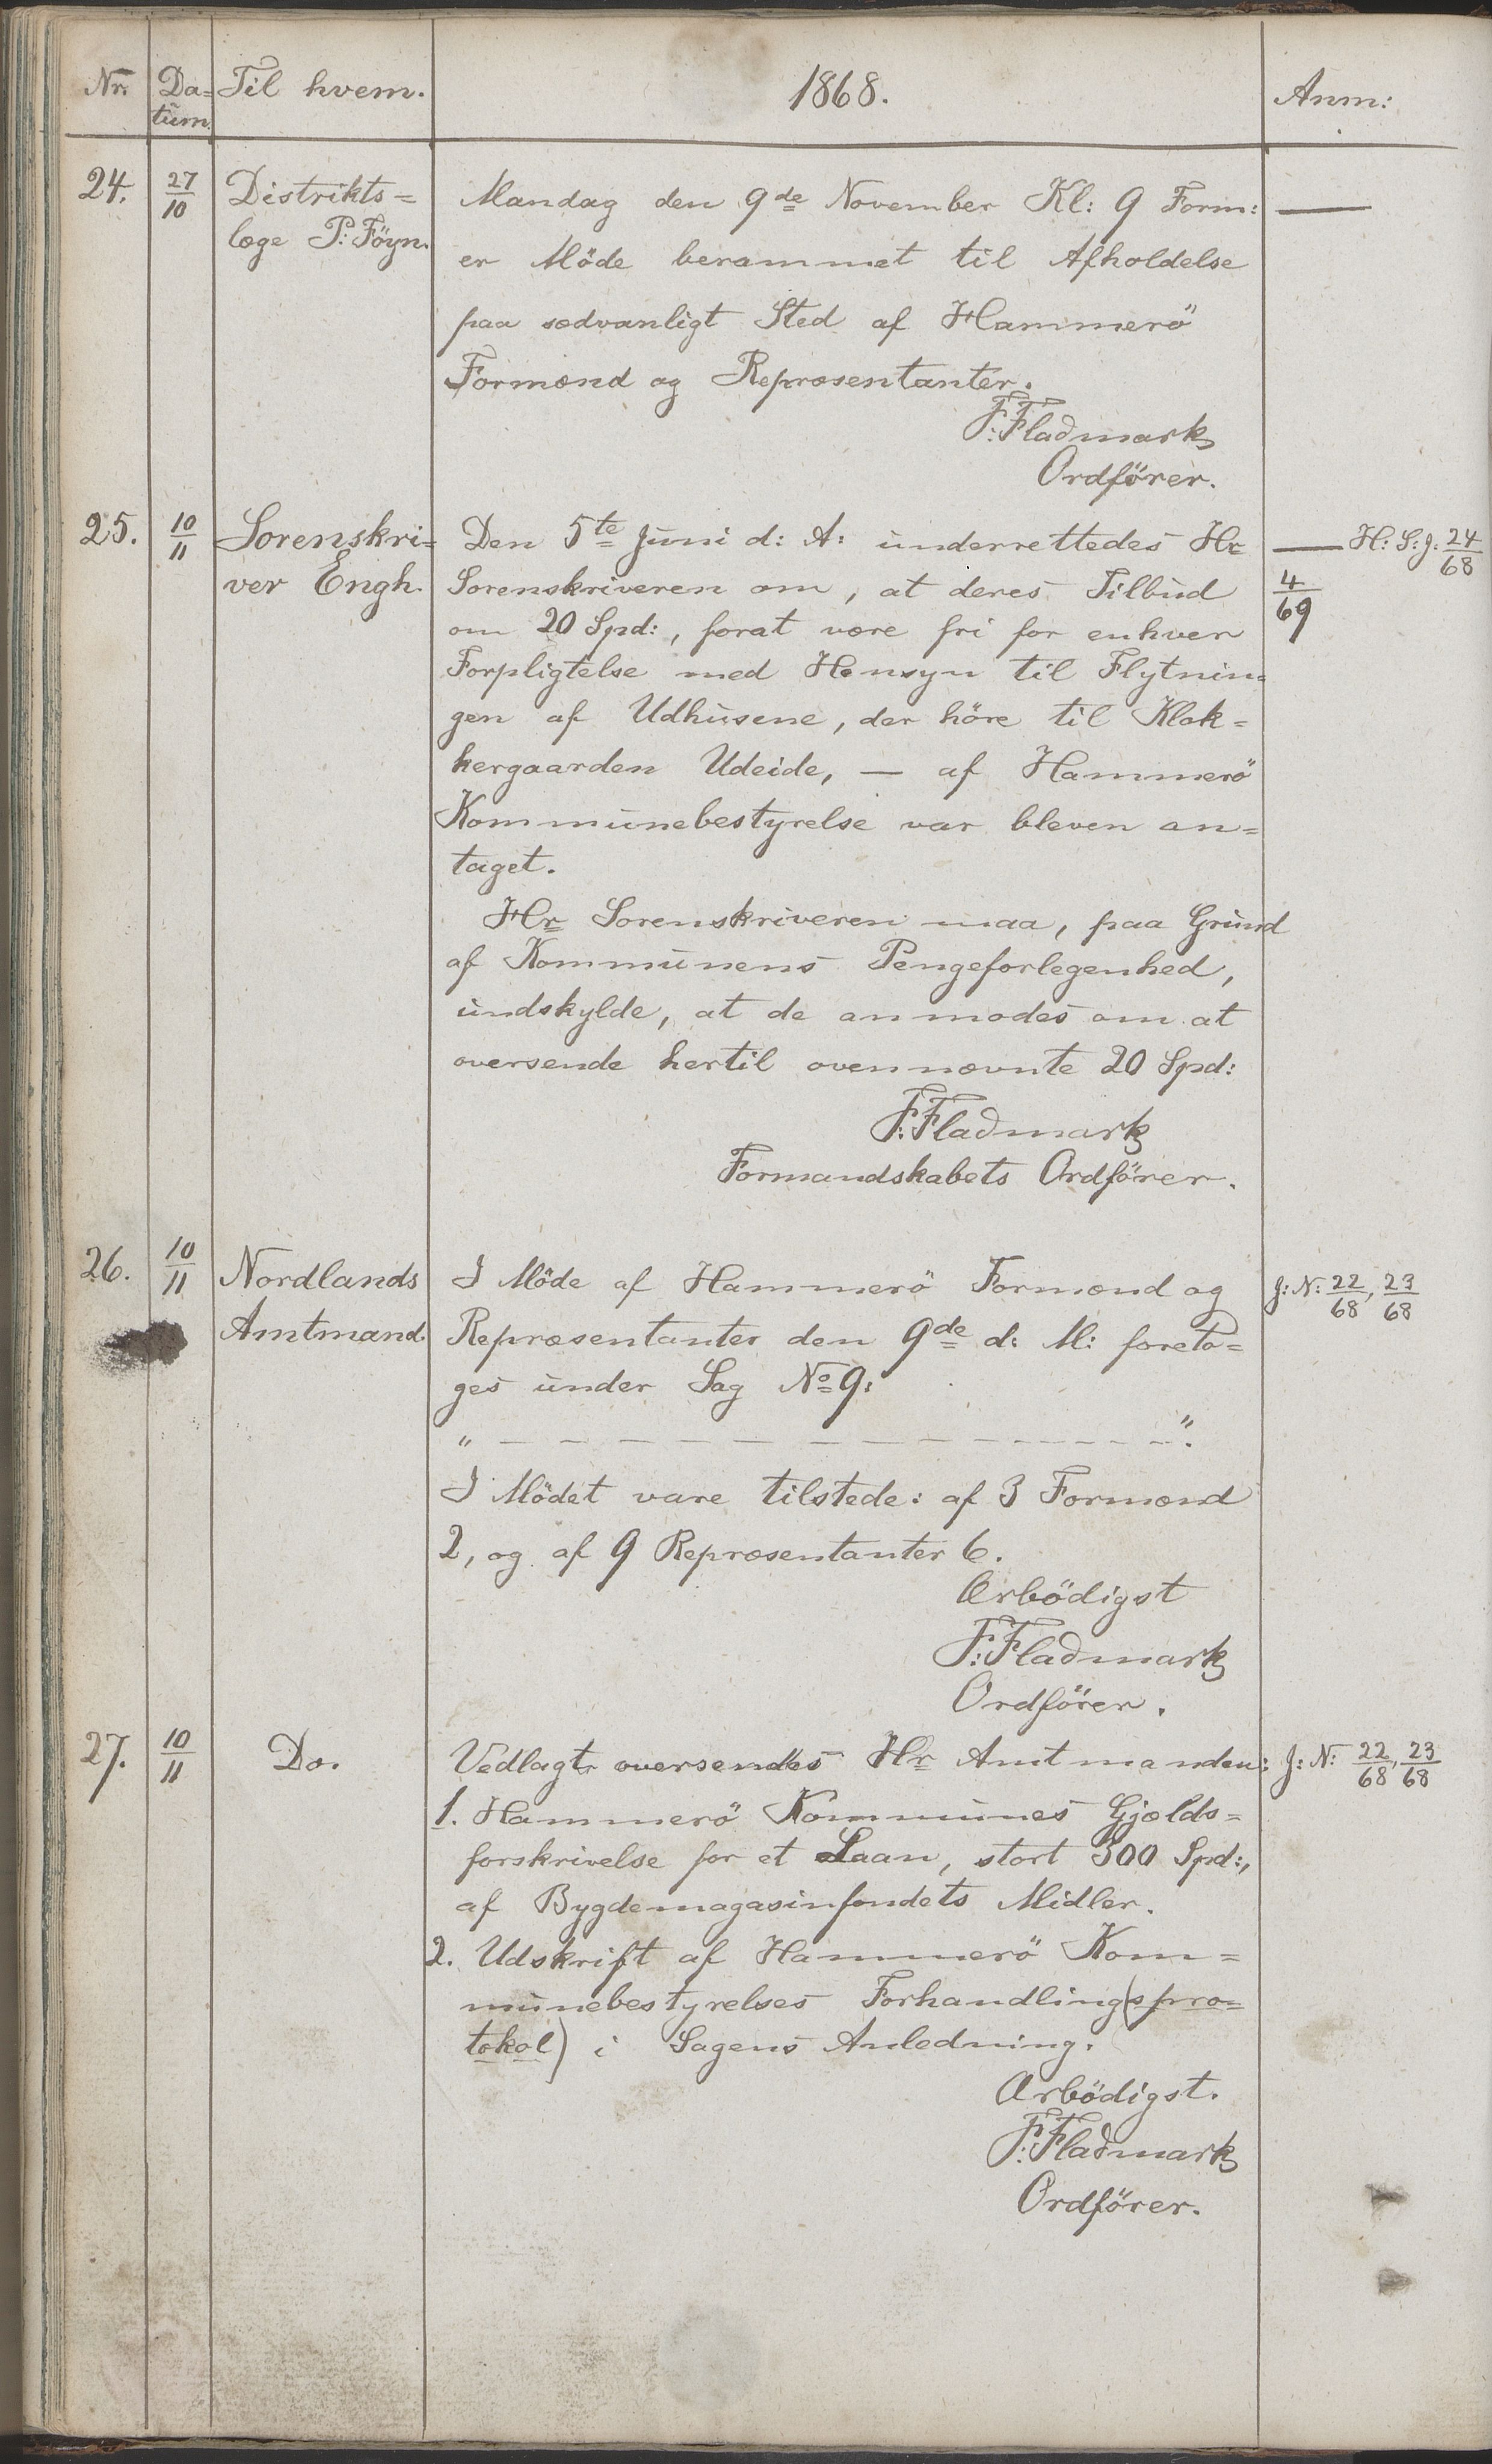 Nr. Da= Til hvem. 1868. Anm:
tum.
24. 27/10 Distrikts= Mandag den 9de November Kl: 9 Form: —
læge P: Föyn. er Möde berammet til Afholdelse
paa sædvanligt Sted af Hammerö
Formænd og Repræsentanter.
F: Fladmark
Ordförer.
25. 10/11 Sorenskri= Den 5te Juni d: A: underrettedes Hr — H: S: J: 24/68
ver Engh. Sorenskriveren om, at deres Tilbud 4/69
om 20 Spd:, forat være fri for enhver
Forpligtelse med Hensyn til Flytnin=
gen af Udhusene, der höre til Klok=
kergaarden Udeide, — af Hammerö
Kommunebestyrelse var bleven an=
taget.
Hr Sorenskriveren maa, paa Grund
af Kommunens Pengeforlegenhed,
undskylde, at de anmodes om at
oversende hertil ovennævnte 20 Spd:
F: Fladmark
Formandskabets Ordförer.
26. 10/11 Nordlands I Möde af Hammerö Formænd og J: N: 22/68, 23/68
Amtmand. Repræsentanter den 9de d: M: foreto=
ges under Sag No 9:
" — — — — — — — — — — — — ".
I Mödet vare tilstede: af 3 Formænd
2, og af 9 Repræsentanter 6.
Ærbödigst
F: Fladmark
Ordförer.
27. 10/11 Do. Vedlagt oversendes Hr Amtmanden: J: N: 22/68, 23/68
1. Hammerö Kommunes Gjælds=
forskrivelse for et Laan, stort 300 Spd:,
af Bygdemagasinfondets Midler.
2. Udskrift af Hammerö Kom=
munebestyrelses Forhandling(spro=
tokol) i Sagens Anledning.
Ærbödigst.
F: Fladmark
Ordförer.